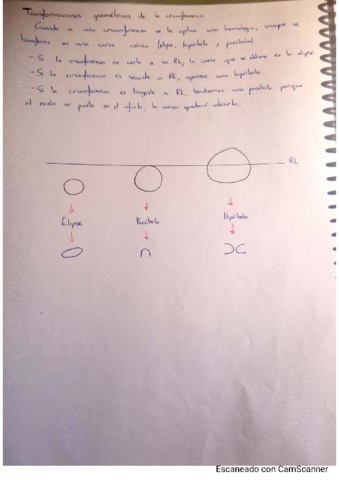 Transformaciones geométricas de la circunferencia
Cuando a una circunferencia se le aplica una homología, siempre se
transforma en una curva cónica (elipse, hipérbola y parábola)
- Si la circunferencia no corta a su RL, la curva que se obtiene es la elipse
- Si la circunferencia es secante a RL, aparece una hipérbola.
- Si la circunferencia es tangente a RL, tendremos una parábola porque
al existir un punto en el infinito, la curva quedará abierta.
RL
Elipse Parábola Hipérbola
Escaneado con CamScanner